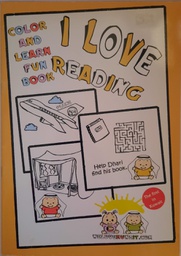 COLOR
AND
LEARN
FUN
BOOK
I LOVE
READING
Help Dhari
find his book.